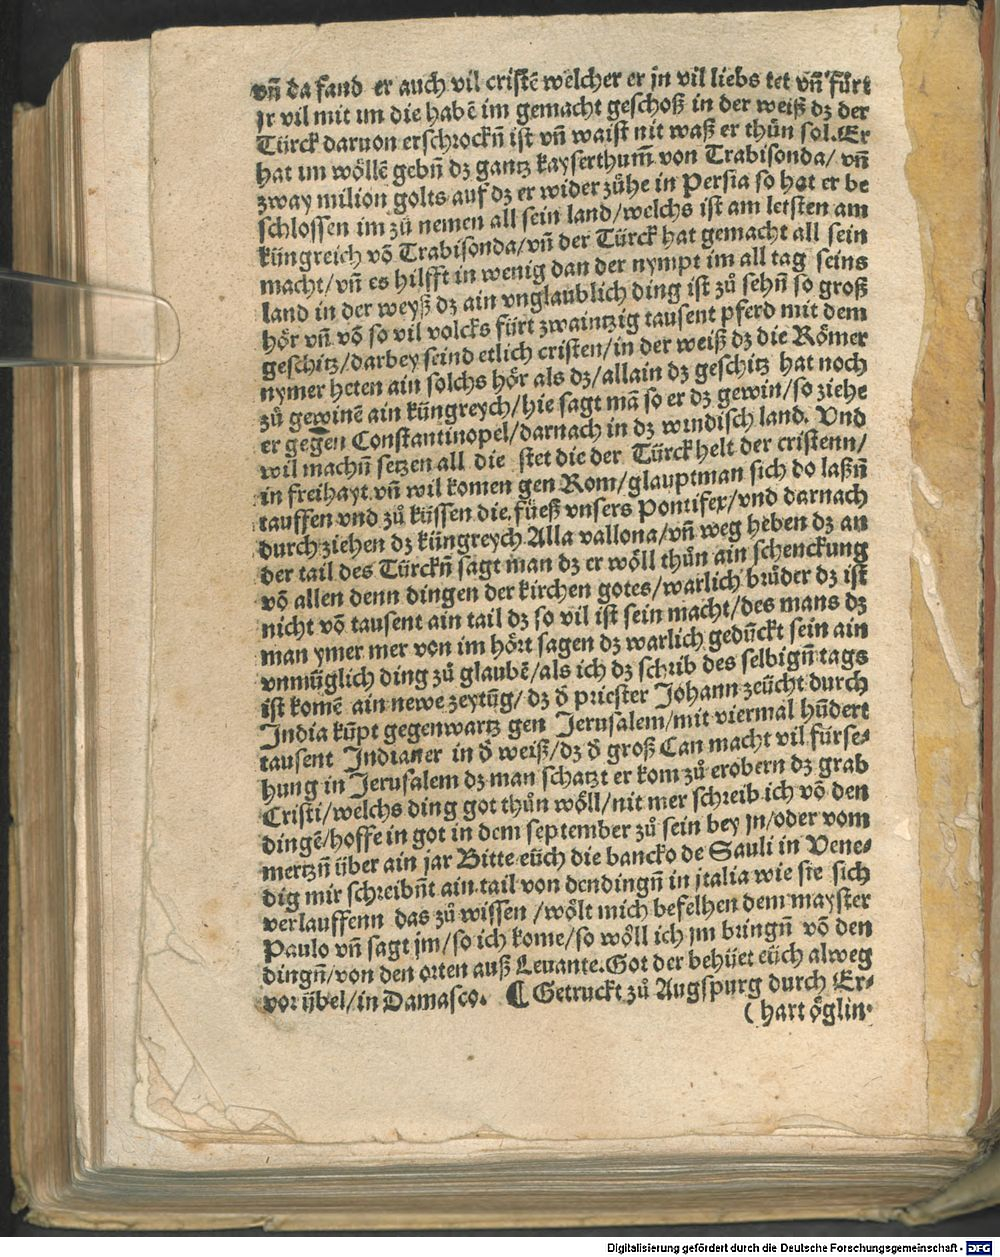 vn̄ da fand er auch vil cristē welcher er jn vil liebs tet vn̄ fürt
jr vil mit im die habē im gemacht geschoß in der weiß dz der
Türck daruon erschrockn̄ ist vn̄ waist nit waß er thůn sol. Er
hat im wöllē gebn̄ dz gantz kayserthum̄ von Trabisonda/ vn̄
zway milion golts auf dz er wider zůhe in Persia so hat er be
schlossen im zů nemen all sein land/welchs ist am letsten am
küngreich vō Trabisonda/vn̄ der Türck hat gemacht all sein
macht/vn̄ es hilfft in wenig dan der nympt im all tag seins
land in der weyß dz ain vnglaublich ding ist zů sehn̄ so groß
hör vn̄ vō so vil volcks fürt zwaintzig tausent pferd mit dem
geschitz/darbey seind etlich cristen/in der weiß dz die Römer
nymer heten ain solchs hör als dz/allain dz geschitz hat noch
zů gewinē ain küngreych/hie sagt mā so er dz gewin/so ziehe
er gegen Constantinopel/darnach in dz windisch land. Vnd
wil machn̄ setzen all die stet die der Türck helt der cristenn/
in freihayt vn̄ wil komen gen Rom/glauptman sich do laßn̄
tauffen vnd zů küssen die füeß vnsers Pontifex/vnd darnach
durch ziehen dz küngreych Alla vallona/vn̄ weg heben dz an
der tail des Türckn̄ sagt man dz er wöll thůn ain schenckung
vō allen denn dingen der kirchen gotes/warlich brůder dz ist
nicht vō tausent ain tail dz so vil ist sein macht/des mans dz
man ymer mer von im hört sagen dz warlich gedūckt sein ain
vnmüglich ding zů glaubē/als ich dz schrib des selbign̄ tags
ist komē ain newe zeytūg/ dz d̄ priester Johann zeücht durch
India kūpt gegenwartz gen Jerusalem/mit viermal hūdert
tausent Indianer in d̄ weiß/dz d̄ groß Can macht vil fürse-
hung in Jerusalem dz man schatzt er kom zů erobern dz grab
Cristi/welchs ding got thůn wöll/nit mer schreib ich vō den
dingē/hoffe in got in dem september zů sein bey jn/oder vom
mertzn̄ über ain jar Bitte eüch die bancko de Sauli in Vene-
dig mir schreibn̄t ain tail von dendingn̄ in jtalia wie sie sich
verlauffenn das zů wissen /wölt mich befelhen dem mayster
Paulo vn̄ sagt jm/so ich kome/so wöll ich jm bringn̄ vō den
dingn̄/von den orten auß Leuante. Got der behüet eüch alweg
vor übel/in Damasco. ¶ Getruckt zů Augspurg durch Er-
(hart öglin.
Digitalisierung gefördert durch die Deutsche Forschungsgemeinschaft - DFG